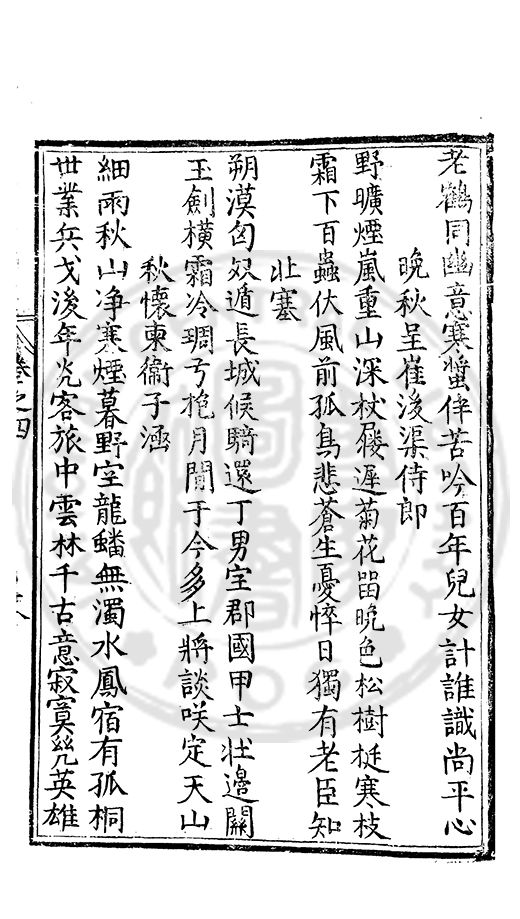 老鶴同幽意寒螿伴苦吟百年兒女計誰識尚平心
晚秋呈崔後渠侍郎
野曠煙嵐重山深杖屨遲菊花畱晚色松樹挺寒枝
霜下百蟲伏風前孤鳥悲蒼生憂悴日獨有老臣知
北塞
朔漠匈奴遁長城候騎還丁男空郡國甲士壯邊關
玉劍橫霜冷琱弓抱月閒于今多上將談咲定天山
秋懷柬衞子涵
細雨秋山净寒煙暮野空龍蟠無濁水鳳宿有孤桐
世業兵戈後年光客旅中雲林千古意寂寞幾英雄
卷之四